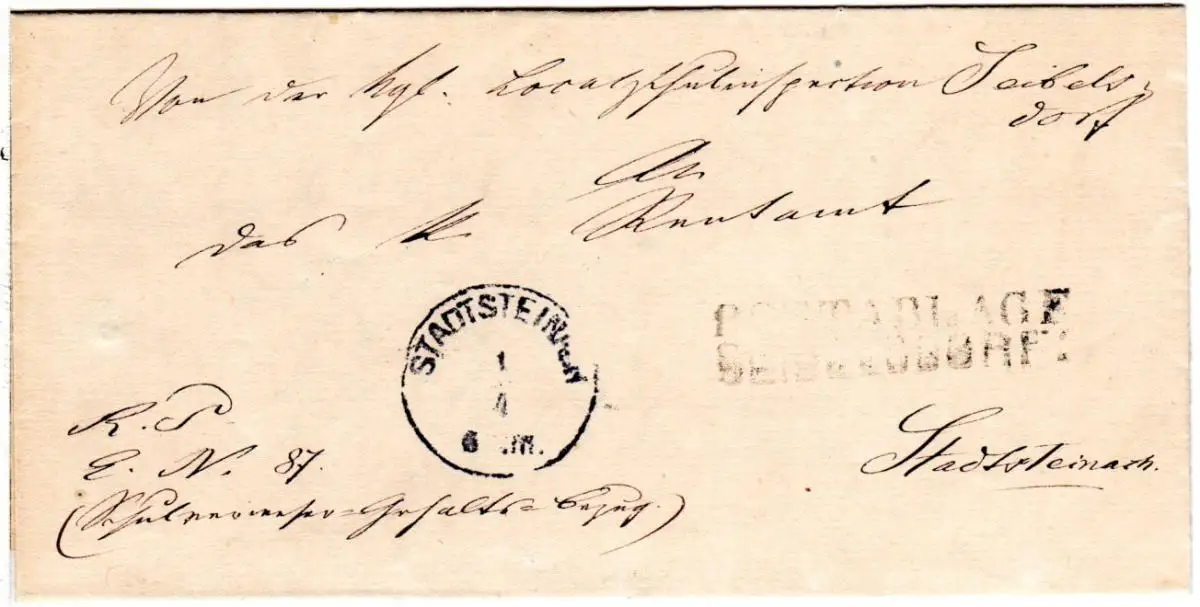 Von der kgl. Localschulinspection Seibels-
dorf
An
das k Rentamt
POSTABLAGE
SEIBELSDORF.
STADTSTEINACH
1
4
6 .M.
R. S.
E. No. 87.
(Schulverweser-Gehalts-Bezug.)
Stadtsteinach.